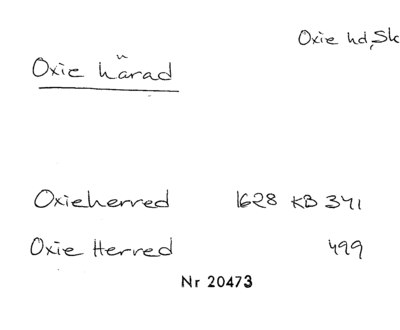 Oxie hd, Sk
Oxie härad
Oxieherred 1628 KB 341
Oxie Herred 499
Nr 20473